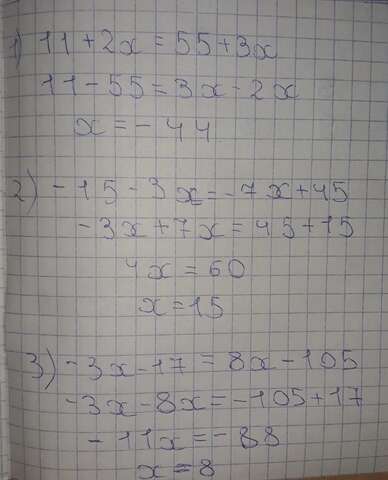 1) 11+2x=55+3x
11-55=3x-2x
x=-44
2) -15-3x=-7x+45
-3x+7x=45+15
4x=60
x=15
3) -3x-17=8x-105
-3x-8x=-105+17
-11x=-88
x=8